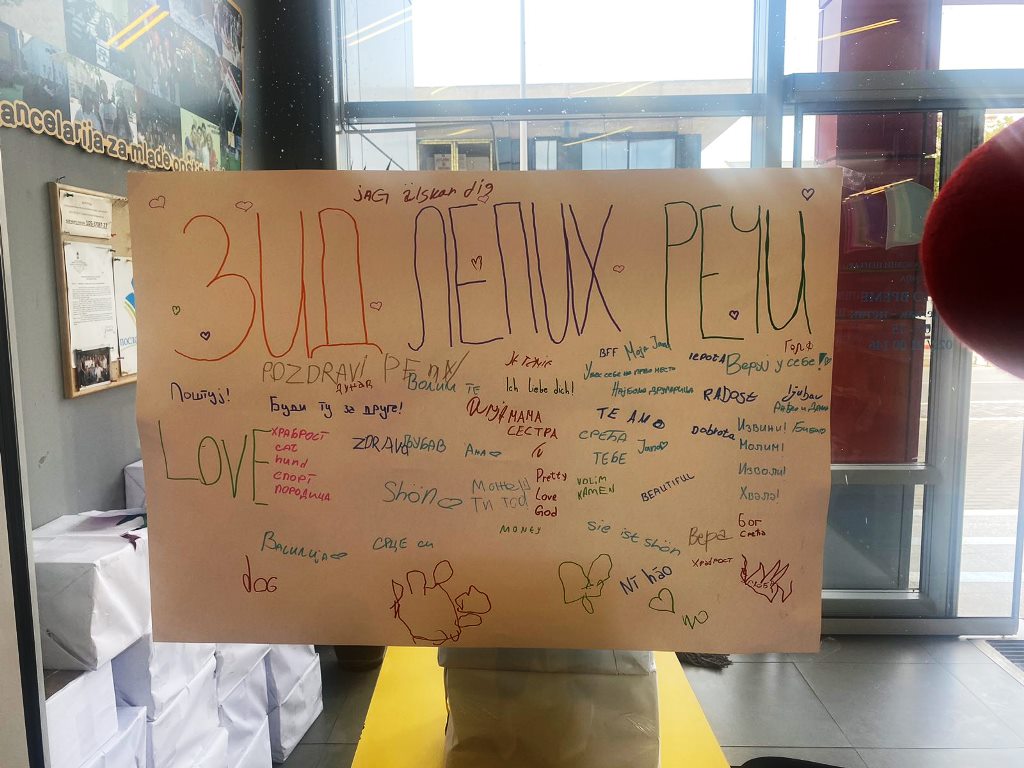 ancelarija za mlade opšt
JAG älskar dig
ЗИД ЛЕПИХ РЕЧИ
POZDRAVI
ДУНАВ
ВОЛИМ ТЕ
Ich liebe dich!
BFF
Moja Jana
УВЕК СЕБЕ НА ПРВО МЕСТО
НАЈБОЉА ДРУГАРИЦА
ЛЕПОТА
Веруј у себе!
ГОЛФ
Поштуј!
Буди ту за друге!
МАМА
СЕСТРА
TE AMO
RADOST
Ljubav
LOVE
ХРАБРОСТ
САТ
hund
СПОРТ
ПОРОДИЦА
ZDRAVO
ЉУБАВ
Ана
СРЕЋА
ТЕБЕ
Jana
Dobrota
Извини!
Молим!
Изволи!
Хвала!
Shön
Можеш
Ти то
Pretty
Love
God
VOLIM
KAMEN
BEAUTIFUL
MONEY
Sie ist shön
Вера
Бог
Срећа
ХРАБРОСТ
Василија
СРЦЕ СИ
dog
Nǐ hǎo